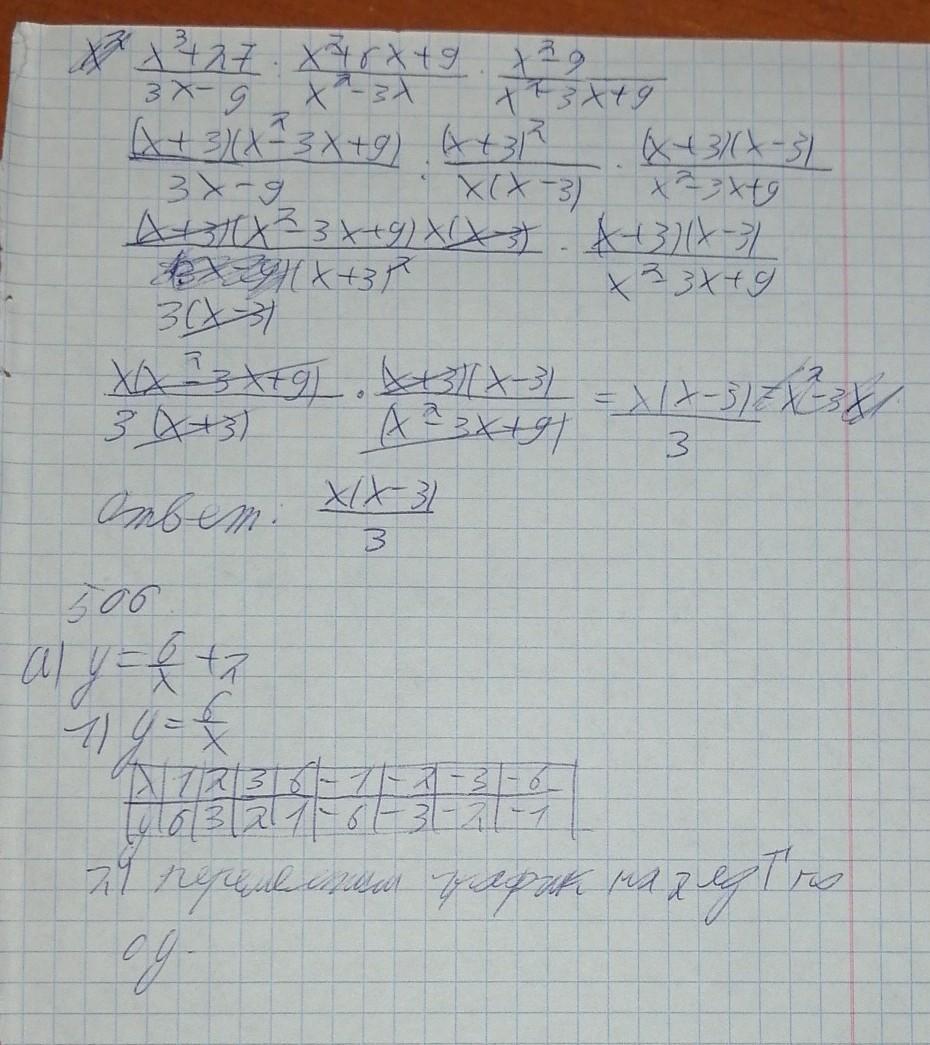 (x³+27)/(3x-9) : (x²+6x+9)/(x²-3x) · (x²-9)/(x²-3x+9)
((x+3)(x²-3x+9))/(3x-9) : (x+3)²/(x(x-3)) · ((x+3)(x-3))/(x²-3x+9)
((x+3)(x²-3x+9)x(x-3))/(3(x-3)(x+3)²) · ((x+3)(x-3))/(x²-3x+9)
(x(x²-3x+9))/(3(x+3)) · ((x+3)(x-3))/(x²-3x+9) = (x(x-3))/3 = x²-3x
Ответ: (x(x-3))/3
506
а) y = 6/x + 2
1) y = 6/x
x | 1 | 2 | 3 | 6 | -1 | -2 | -3 | -6
y | 6 | 3 | 2 | 1 | -6 | -3 | -2 | -1
2) переместим график на 2 ед ↑ по
оy.